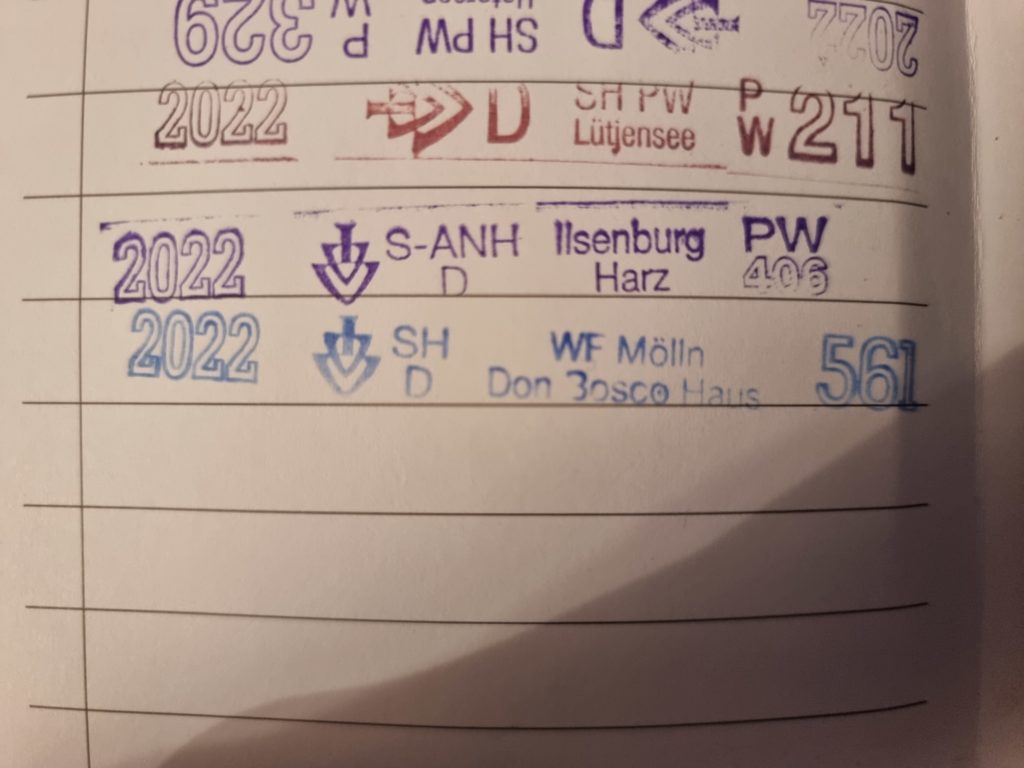 P W 329 SH PW D 2022
2022 D SH PW Lütjensee P W 211
2022 S-ANH D Ilsenburg Harz PW 406
2022 SH D WF Mölln Don Bosco Haus 561